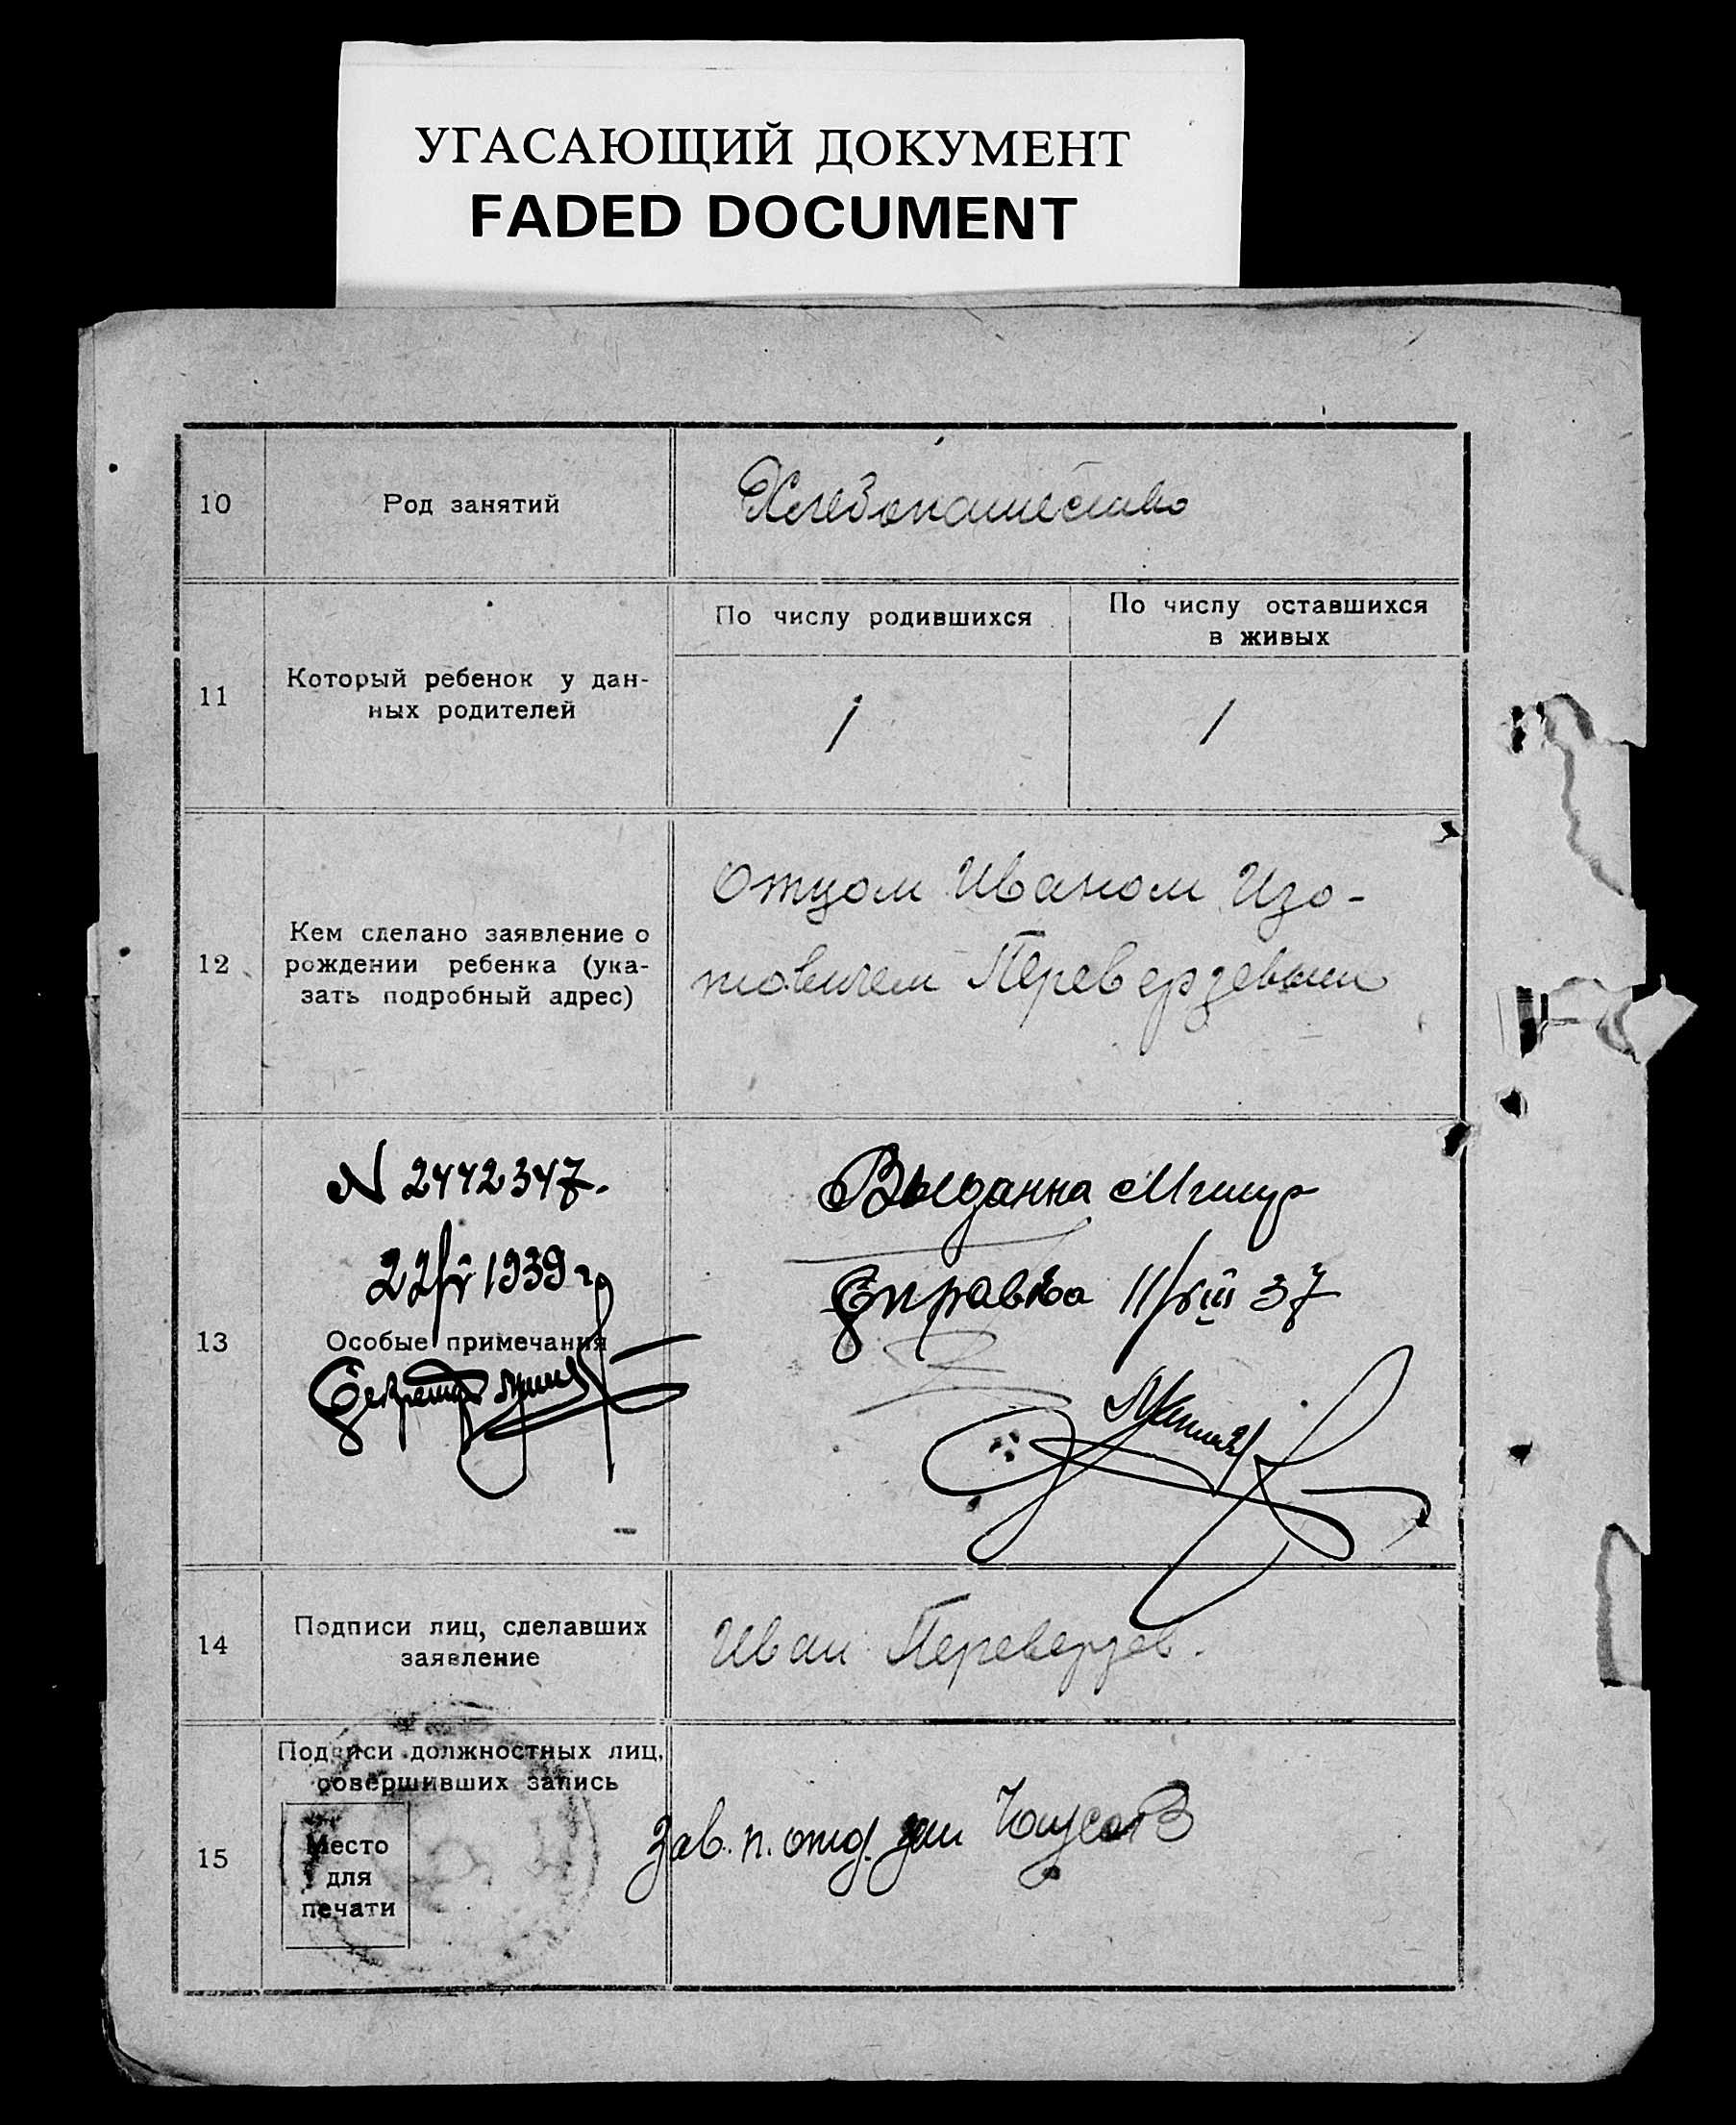 УГАСАЮЩИЙ ДОКУМЕНТ
FADED DOCUMENT
10
Род занятий
Хлебопашество
11
Который ребенок у дан-
ных родителей
По числу родившихся
По числу оставшихся
в живых
1
1
12
Кем сделано заявление о
рождении ребенка (ука-
зать подробный адрес)
Отцом Иваном Изо-
товичем Переверзевым
13
N 2442347.
22/V 1939 г
Особые примечания
Секретарь
Выданна
Справка 11/VIII 37
14
Подписи лиц, сделавших
заявление
Иван Переверзев.
15
Подписи должностных лиц,
совершивших запись
Место
для
печати
Зав. п. отд. заг